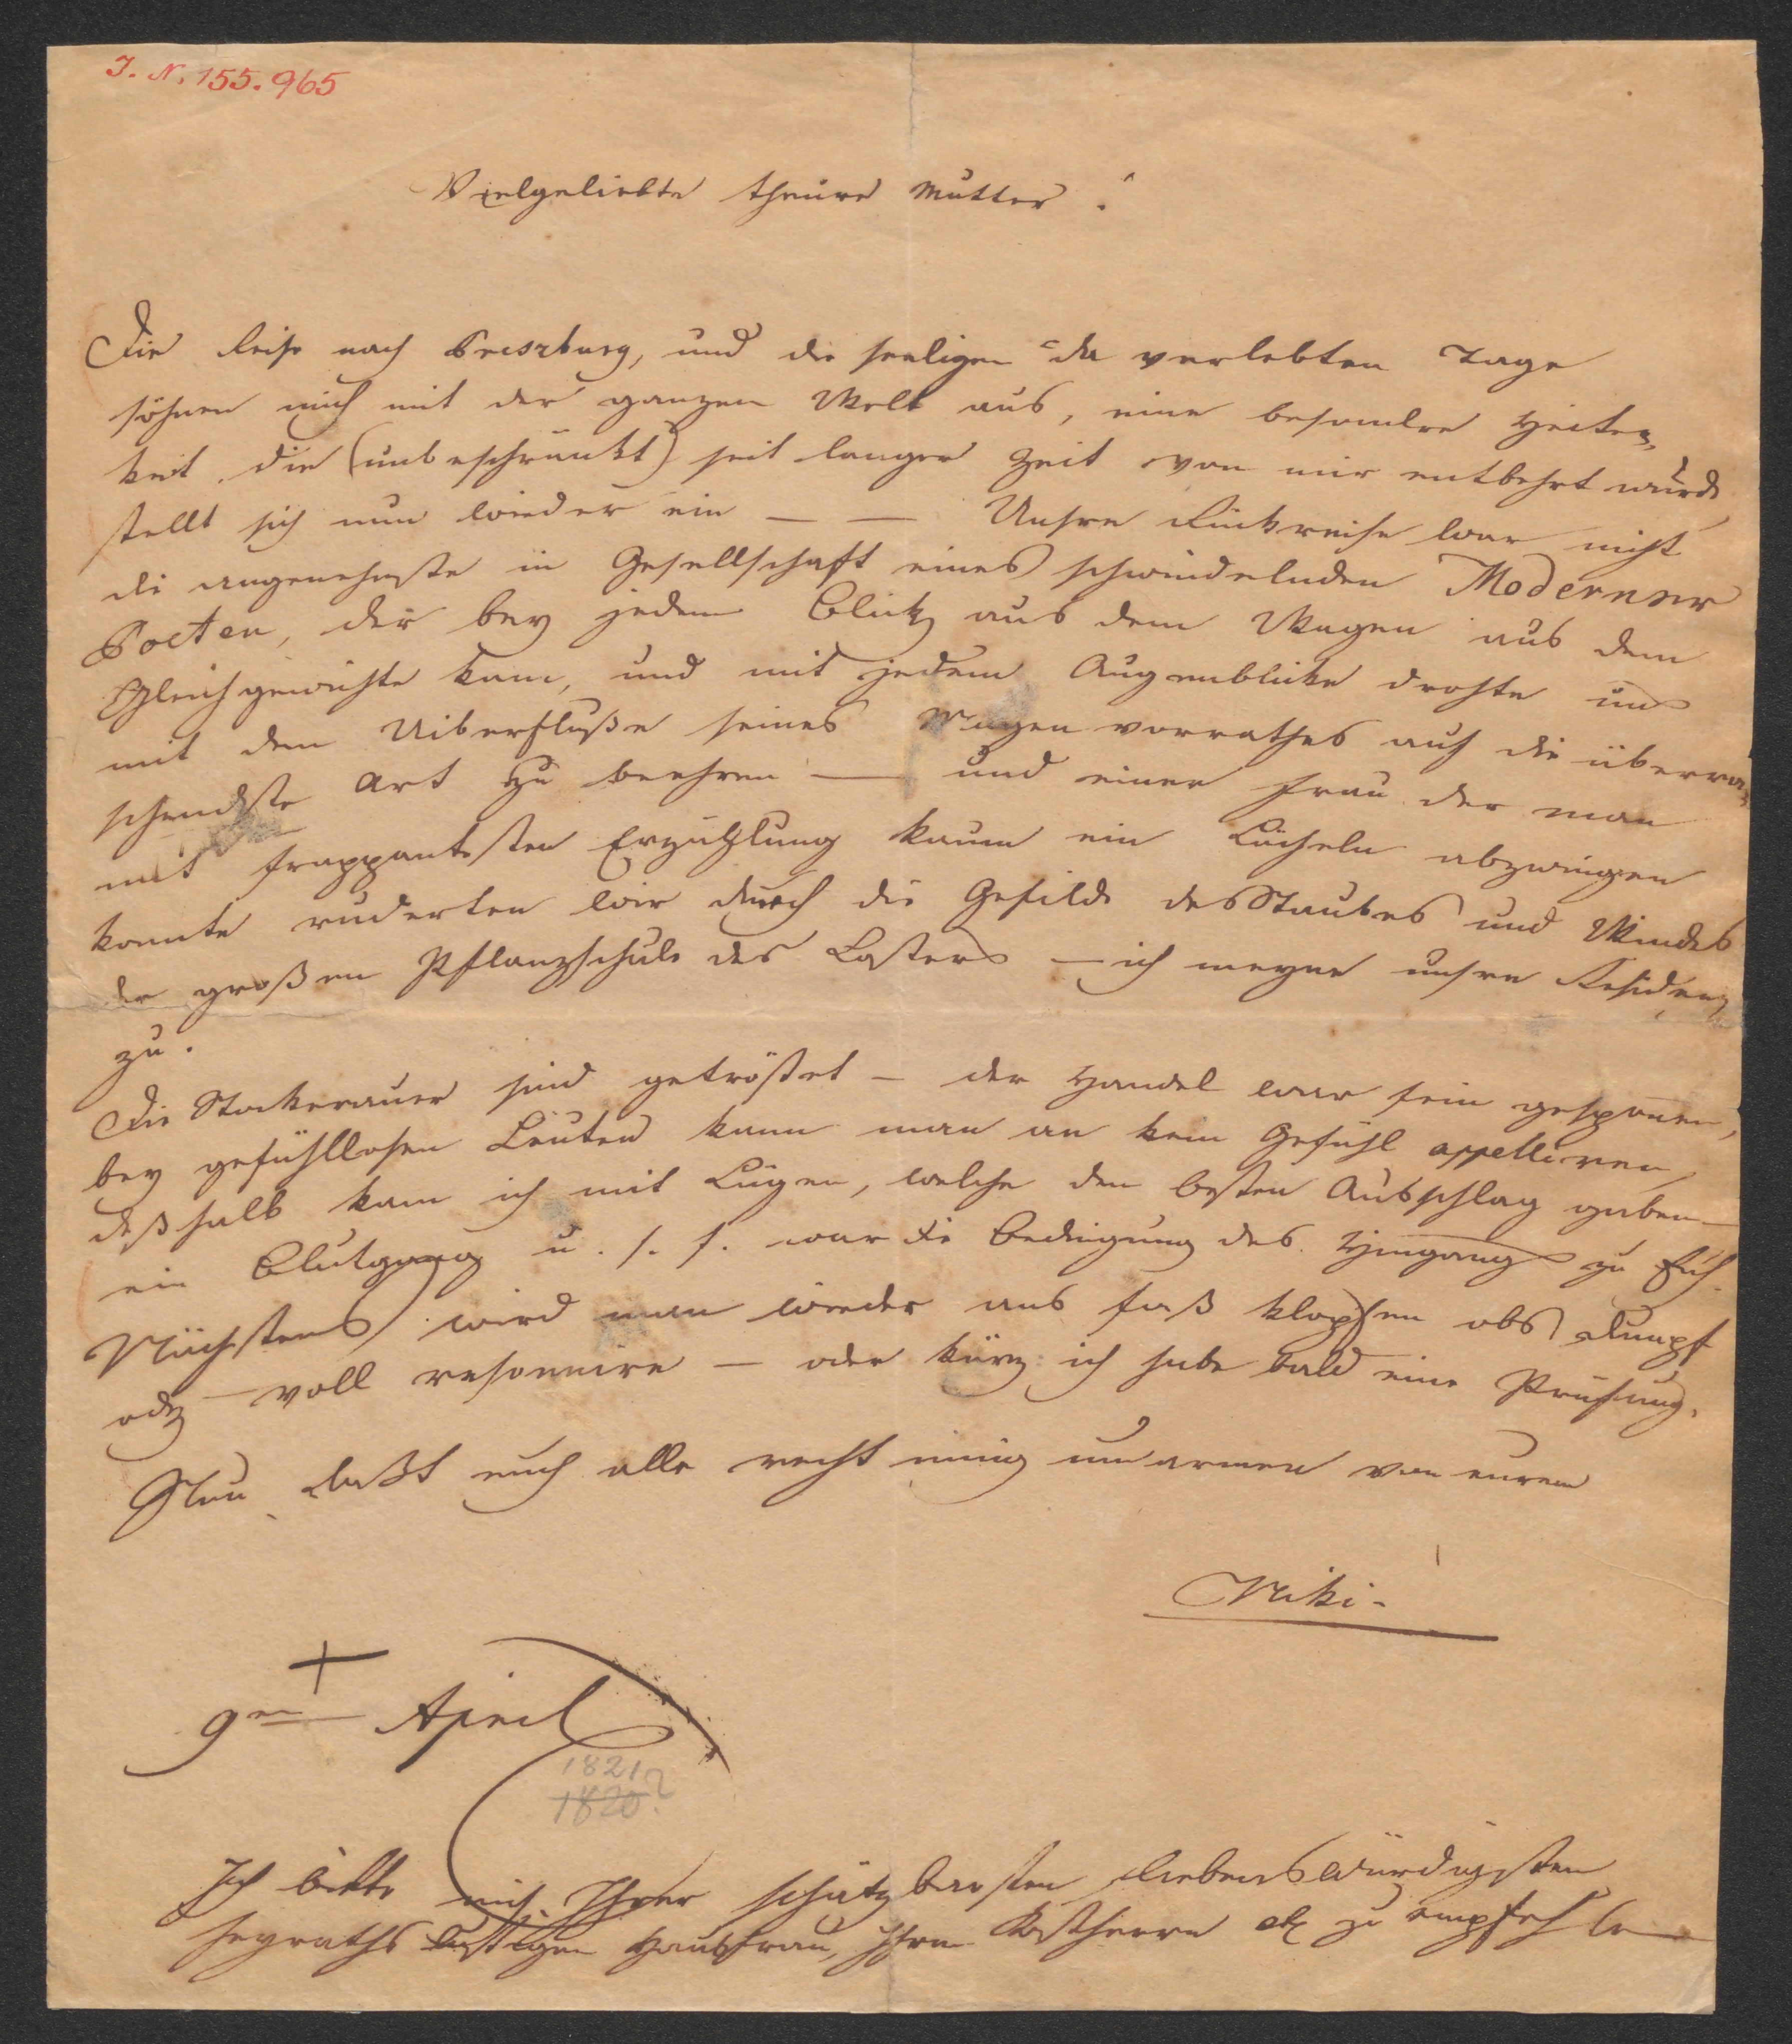 I. N. 155.965
Vielgeliebte theure Mutter!
Die Reise nach Preszburg, und die seeligen da verlebten Tage
söhnen mich mit der ganzen Welt aus, eine besondre Heiter-
keit die (unbeschränkt) seit langer Zeit von mir entbehrt wurde
stellt sich nun wieder ein — — Unsre Rückreise war nicht
die angenehmste in Gesellschaft eines schwindelnden Moderner
Poeten, der bey jedem Blick aus dem Wagen aus dem
Gleichgewichte kam, und mit jedem Augenblicke drohte uns
mit dem Uiberfluße seines Magenvorrathes auf die überra-
schendste Art zu beehren — und einer Frau der man
mit frappantesten Erzählung kaum ein Lächeln abzwingen
konnte ruderten wir durch die Gefilde des Staubes und Windes
der großen Pflanzschule des Lasters — ich meyne unsre Residenz
zu.
Die Stockerauer sind getröstet — der Handel war fein gesponnen,
bey gefühllosen Leuten kann man an kein Gefühl appelliren
deßhalb kam ich mit Lügen, welche den besten Ausschlag gaben —
ein Blutgang u. s. f. war die Bedingung des Hingangs zu Euch.
Nächstens wird man wieder ans Faß klopfen obs dumpf
oder — voll resonnire — oder kurz: ich habe bald eine Prüfung.
Nun laßt euch alle recht innig umarmen von eurem
Niki-
9ten April
1821
1820?
Ich bitte mich Ihrer schätzbarsten liebenswürdigsten
lustigen Hausfrau, Ihrem Kostherrn etz zu empfehlen